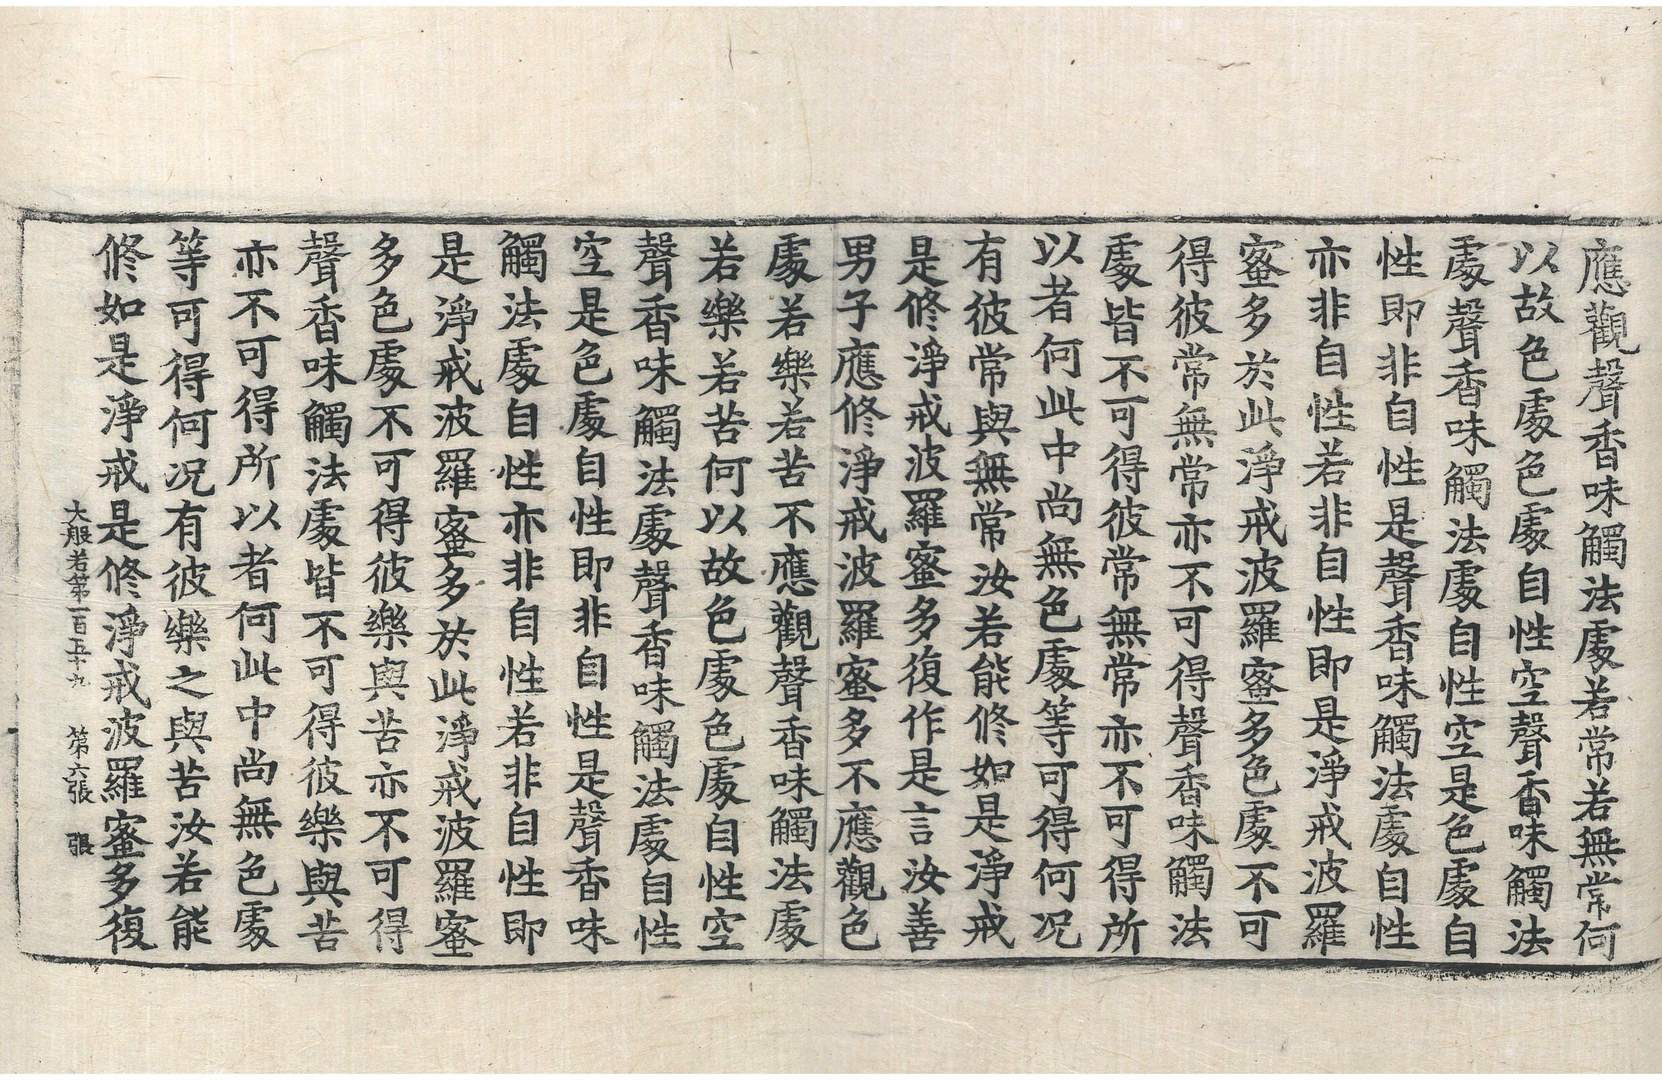 應觀聲香味觸法處若常若無常何
以故色處色處自性空聲香味觸法
處聲香味觸法處自性空是色處自
性即非自性是聲香味觸法處自性
亦非自性若非自性即是淨戒波羅
蜜多於此淨戒波羅蜜多色處不可
得彼常無常亦不可得聲香味觸法
處皆不可得彼常無常亦不可得所
以者何此中尚無色處等可得何况
有彼常與無常汝若能修如是淨戒
是修淨戒波羅蜜多復作是言汝善
男子應修淨戒波羅蜜多不應觀色
處若樂若苦不應觀聲香味觸法處
若樂若苦何以故色處色處自性空
聲香味觸法處聲香味觸法處自性
空是色處自性即非自性是聲香味
觸法處自性亦非自性若非自性即
是淨戒波羅蜜多於此淨戒波羅蜜
多色處不可得彼樂與苦亦不可得
聲香味觸法處皆不可得彼樂與苦
亦不可得所以者何此中尚無色處
等可得何况有彼樂之與苦汝若能
修如是淨戒是修淨戒波羅蜜多復
大般若第一百五十九 第六張 張